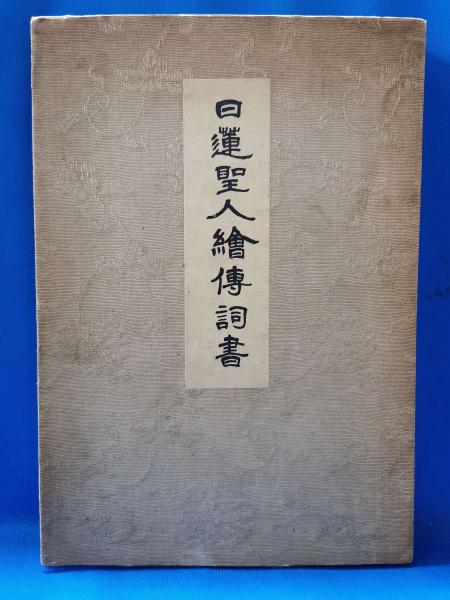 日蓮聖人繪傳詞書